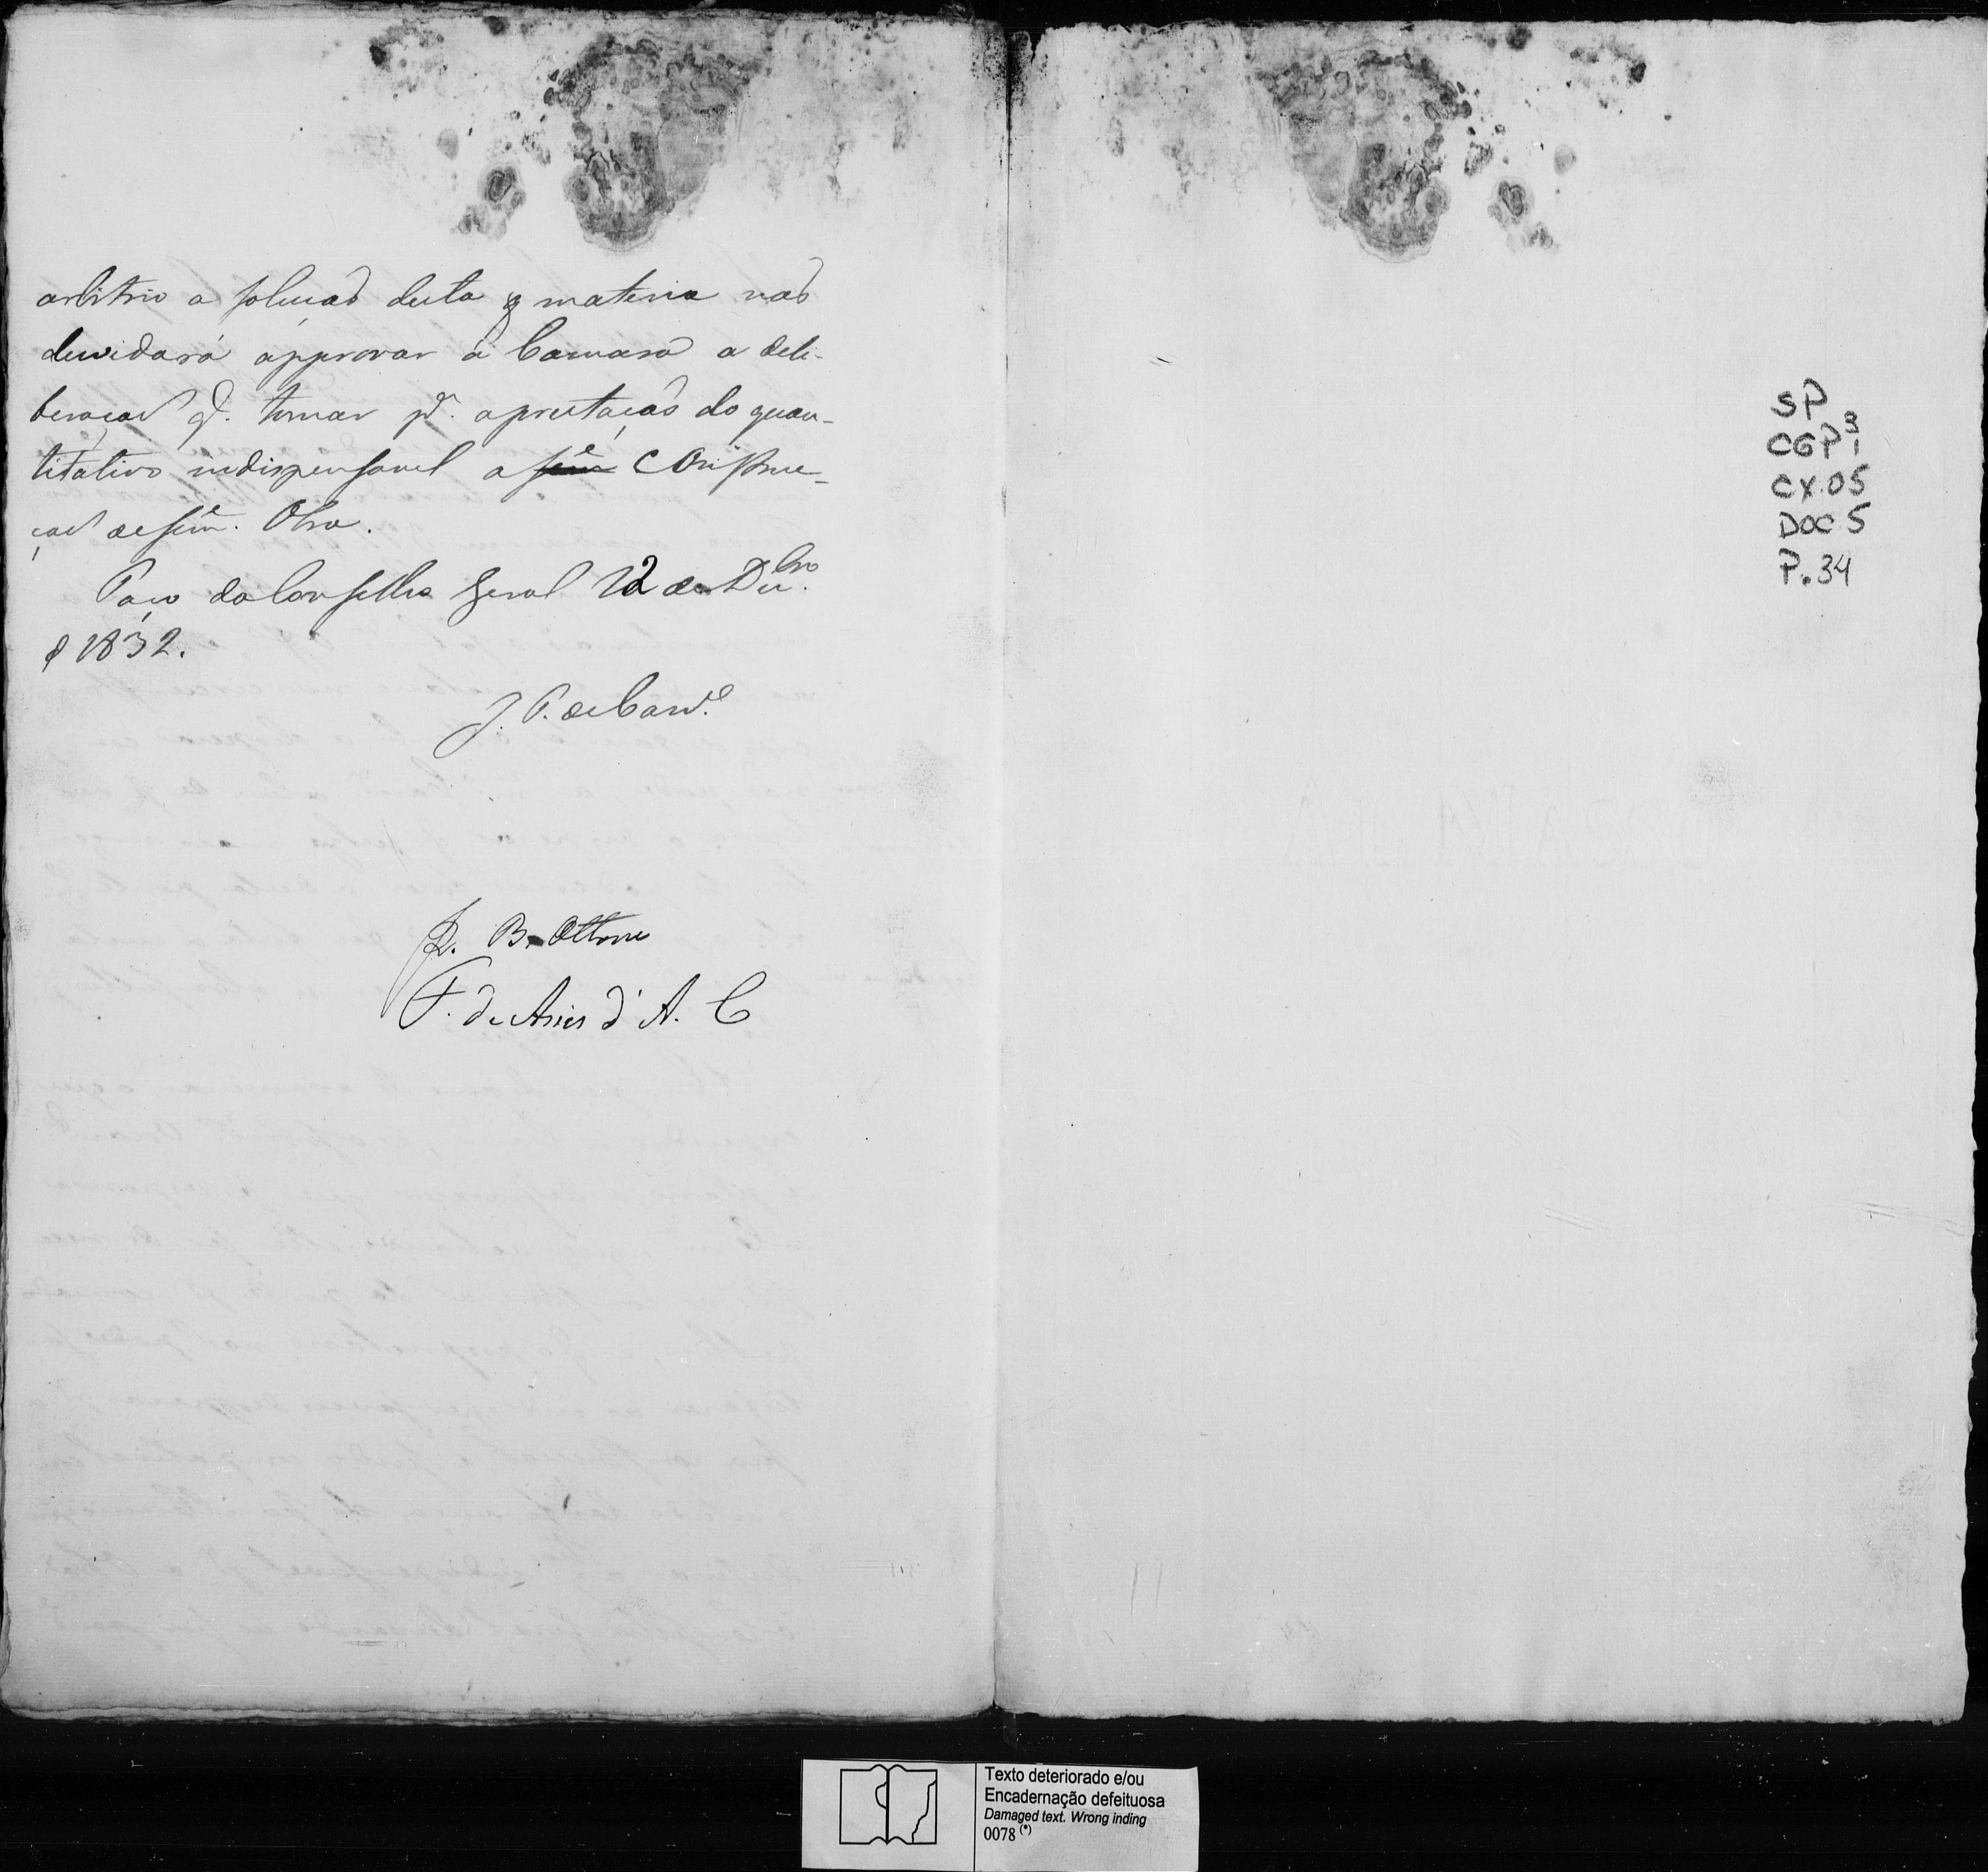 arbitrio a solução desta materia não
duvidará approvar á Camara a deli-
beração q. tomar p.ª a prestação do quan-
titativo indispensavel a Constru-
ção de sem.e Obra.
Paço do Conselho Geral 12 de Dez.bro
d 1832.
J. P. de Carv.o
J. B. Ottoni
F. de Assis d'A. C
SP
CGP 3 1
CX.05
DOC 5
P.34
Texto deteriorado e/ou
Encadernação defeituosa
Damaged text. Wrong inding
0078 (*)